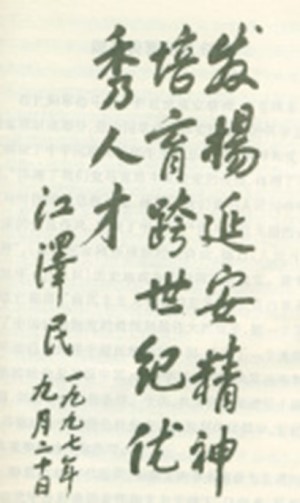 发扬延安精神
培育跨世纪优
秀人才
江泽民
一九九七年
九月二十日